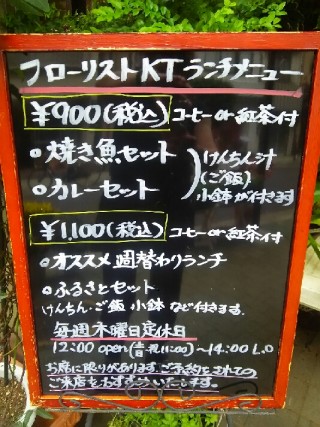 フローリストKTランチメニュー
¥900(税込) コーヒーor紅茶付
○焼き魚セット
○カレーセット
けんちん汁
(ご飯)
小鉢が付きます
¥1,100(税込) コーヒーor紅茶付
○オススメ 週替わりランチ
○ふるさとセット
けんちん・ご飯 小鉢 など付きます.
毎週木曜日定休日
12:00 open( 祝11:00)〜14:00 L.O
お席に限りがあります.ご予約をされての
ご来店をおすすめいたします.